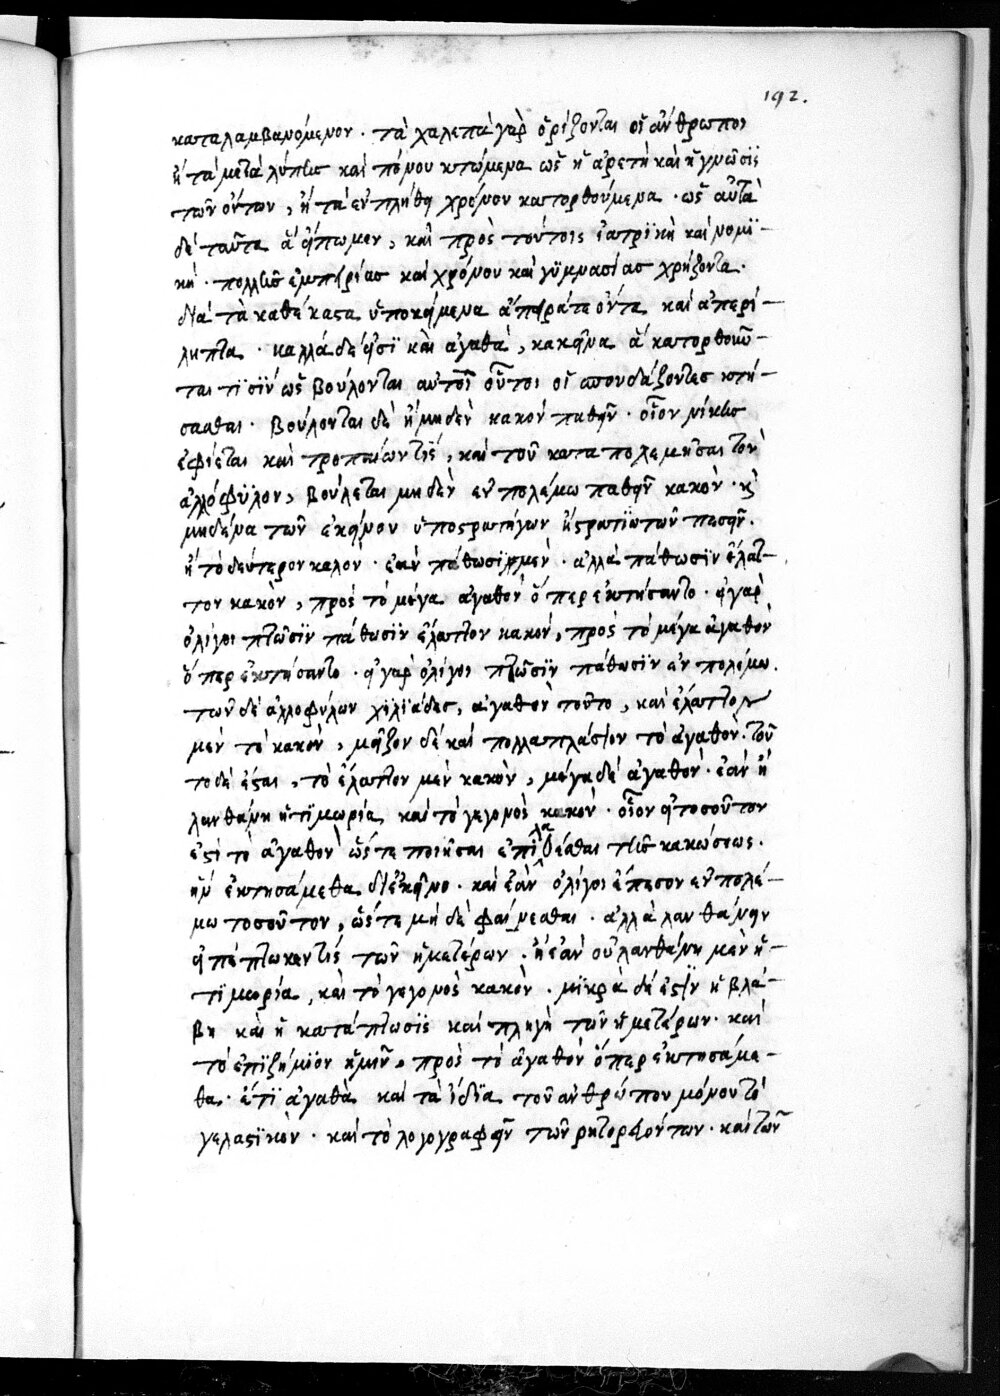 192.
καταλαμβανόμενον · τὰ χαλεπὰ γὰρ ὁρίζονται οἱ ἄνθρωποι
ἢ τὰ μετὰ λύπης καὶ πόνου κτώμενα ὡς ἡ ἀρετὴ καὶ ἡ γνῶσϊς
τῶν ὄντων, ἢ τὰ ἐν πλήθει χρόνου κατορθούμενα · ὡς αὐτὰ
δὲ ταῦτα ἃ εἴπωμεν, καὶ πρὸς τούτοις ἰατρϊκὴ καὶ νομϊ-
κὴ · πολλῆς ἐμπειρίας καὶ χρόνου καὶ γϋμνασίας χρήζοντα ·
διὰ τὰ καθέκαστα ὑποκείμενα ἀπέρατα ὄντα καὶ ἀπερί-
ληπτα · καλλὰ δὲ εἰσὶ καὶ ἀγαθὰ, κακεῖνα ἃ κατορθοῦν-
ται τϊσϊν ὡς βούλονται αὐτοὶ οὗτοι οἱ σπουδάζοντες κτή-
σασθαι · βούλονται δὲ ἢ μηδὲν κακὸν παθεῖν · οἷον νίκης
ἐφίεται καὶ τροπαίων τϊς, καὶ τοῦ καταπολεμῆσαι τὸν
ἀλλόφϋλον, βούλεται μηδὲν ἐν πολέμω παθεῖν κακὸν · κ̀
μηδένα τῶν ἐκείνου ὑποστρατήγων ἢ στρατϊωτῶν πεσεῖν ·
ἢ τὸ δεύτερον καλὸν · ἐὰν πάθωσϊ μὲν · ἀλλὰ πάθωσϊν ἔλατ-
τον κακὸν, πρὸς τὸ μέγα ἀγαθὸν ὅπερ ἐκτήσαντο · εἰ γὰρ
ὀλίγοι πτῶσϊν πάθωσϊν ἔλαττον κακὸν, πρὸς τὸ μέγα ἀγαθὸν
ὅπερ ἐκτήσαντο · εἰ γὰρ ὀλίγοι πτῶσϊν πάθωσϊν ἐν πολέμω ·
τῶν δὲ ἀλλοφύλων χϊλϊάδες, ἀγαθὸν τοῦτο, καὶ ἔλαττον
μὲν τὸ κακὸν, μεῖζον δὲ καὶ πολλαπλάσϊον τὸ ἀγαθὸν · τοῦ
το δὲ ἔσται, τὸ ἔλαττον μὲν κακὸν, μέγα δὲ ἀγαθὸν · ἐὰν ἢ
λανθάνη ἡ τϊμωρία καὶ τὸ γεγονὸς κακὸν · οἷον εἰ τοσοῦτον
ἐστὶ τὸ ἀγαθὸν ὥστε ποιῆσαι ἐπιλαθέσθαι τῆς κακώσεως ·
ἣν ἐκτησάμεθα δι' ἐκεῖνο · καὶ ἐὰν ὀλίγοι ἔπεσον ἐν πολέ-
μω τοσοῦτον, ὥστε μὴ δὲ φαίνεσθαι · ἀλλὰ λανθάνειν
εἰ πέπτωκεν τϊς τῶν ἡμετέρων · ἢ ἐὰν οὐ λανθάνη μὲν ἡ
τϊμωρία, καὶ τὸ γεγονὸς κακὸν · μϊκρὰ δὴ ἐστϊν ἡ βλά-
βη καὶ ἡ κατάπτωσϊς καὶ πληγὴ τῶν ἡμετέρων · καὶ
τὸ ἐπϊζήμϊον ἡμῖν, πρὸς τὸ ἀγαθὸν ὅπερ ἐκτησάμε-
θα · ἔτϊ ἀγαθὰ καὶ τὰ ἴδϊα τοῦ ἀνθρώπου μόνου τὸ
γελαστϊκὸν · καὶ τὸ λογογραφεῖν τῶν ρητορευόντων · καὶ τῶν